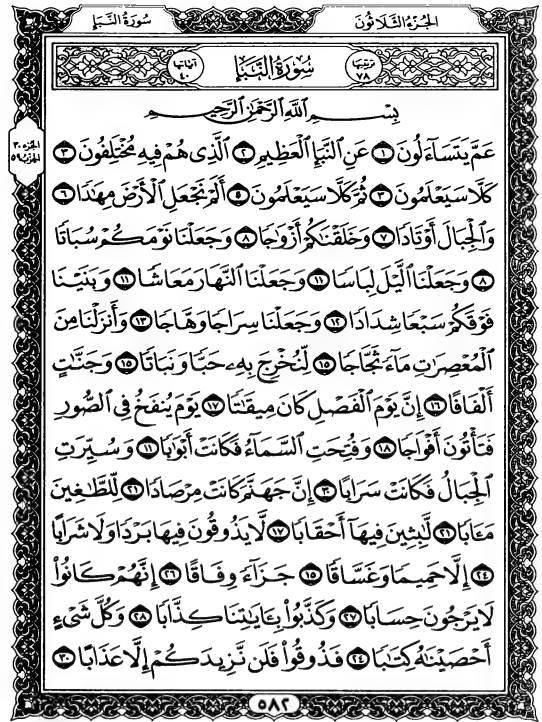 الجزء الثلاثون
سورة النبإ
ترتيبها ٧٨
سُورَةُ النَّبَإِ
آياتها ٤٠
بِسْمِ اللَّهِ الرَّحْمَٰنِ الرَّحِيمِ
الجزء ٣٠
الحزب ٥٩
عَمَّ يَتَسَآءَلُونَ ١ عَنِ النَّبَإِ الْعَظِيمِ ٢ الَّذِى هُمْ فِيهِ مُخْتَلِفُونَ ٣
كَلَّا سَيَعْلَمُونَ ٣ ثُمَّ كَلَّا سَيَعْلَمُونَ ٥ أَلَمْ نَجْعَلِ الْأَرْضَ مِهَٰدًا ٦
وَالْجِبَالَ أَوْتَادًا ٧ وَخَلَقْنَٰكُمْ أَزْوَٰجًا ٨ وَجَعَلْنَا نَوْمَكُمْ سُبَاتًا
٨ وَجَعَلْنَا الَّيْلَ لِبَاسًا ١١ وَجَعَلْنَا النَّهَارَ مَعَاشًا ١١ وَبَنَيْنَا
فَوْقَكُمْ سَبْعًا شِدَادًا ١٢ وَجَعَلْنَا سِرَاجًا وَهَّاجًا ١٣ وَأَنزَلْنَا مِنَ
الْمُعْصِرَٰتِ مَآءً ثَجَّاجًا ١٥ لِّنُخْرِجَ بِهِۦ حَبًّا وَنَبَاتًا ١٥ وَجَنَّٰتٍ
أَلْفَافًا ١٦ إِنَّ يَوْمَ الْفَصْلِ كَانَ مِيقَٰتًا ١٧ يَوْمَ يُنفَخُ فِى الصُّورِ
فَتَأْتُونَ أَفْوَاجًا ١٨ وَفُتِحَتِ السَّمَآءُ فَكَانَتْ أَبْوَٰبًا ١١ وَسُيِّرَتِ
الْجِبَالُ فَكَانَتْ سَرَابًا ٣٠ إِنَّ جَهَنَّمَ كَانَتْ مِرْصَادًا ٢١ لِّلطَّٰغِينَ
مَـَٔابًا ٢١ لَّٰبِثِينَ فِيهَآ أَحْقَابًا ١٧ لَّا يَذُوقُونَ فِيهَا بَرْدًا وَلَا شَرَابًا
٢٤ إِلَّا حَمِيمًا وَغَسَّاقًا ١٥ جَزَآءً وِفَاقًا ٢٦ إِنَّهُمْ كَانُوا۟
لَا يَرْجُونَ حِسَابًا ٢٧ وَكَذَّبُوا۟ بِـَٔايَٰتِنَا كِذَّابًا ٢٨ وَكُلَّ شَىْءٍ
أَحْصَيْنَٰهُ كِتَٰبًا ٢٤ فَذُوقُوا۟ فَلَن نَّزِيدَكُمْ إِلَّا عَذَابًا ٣٠
٥٨٢